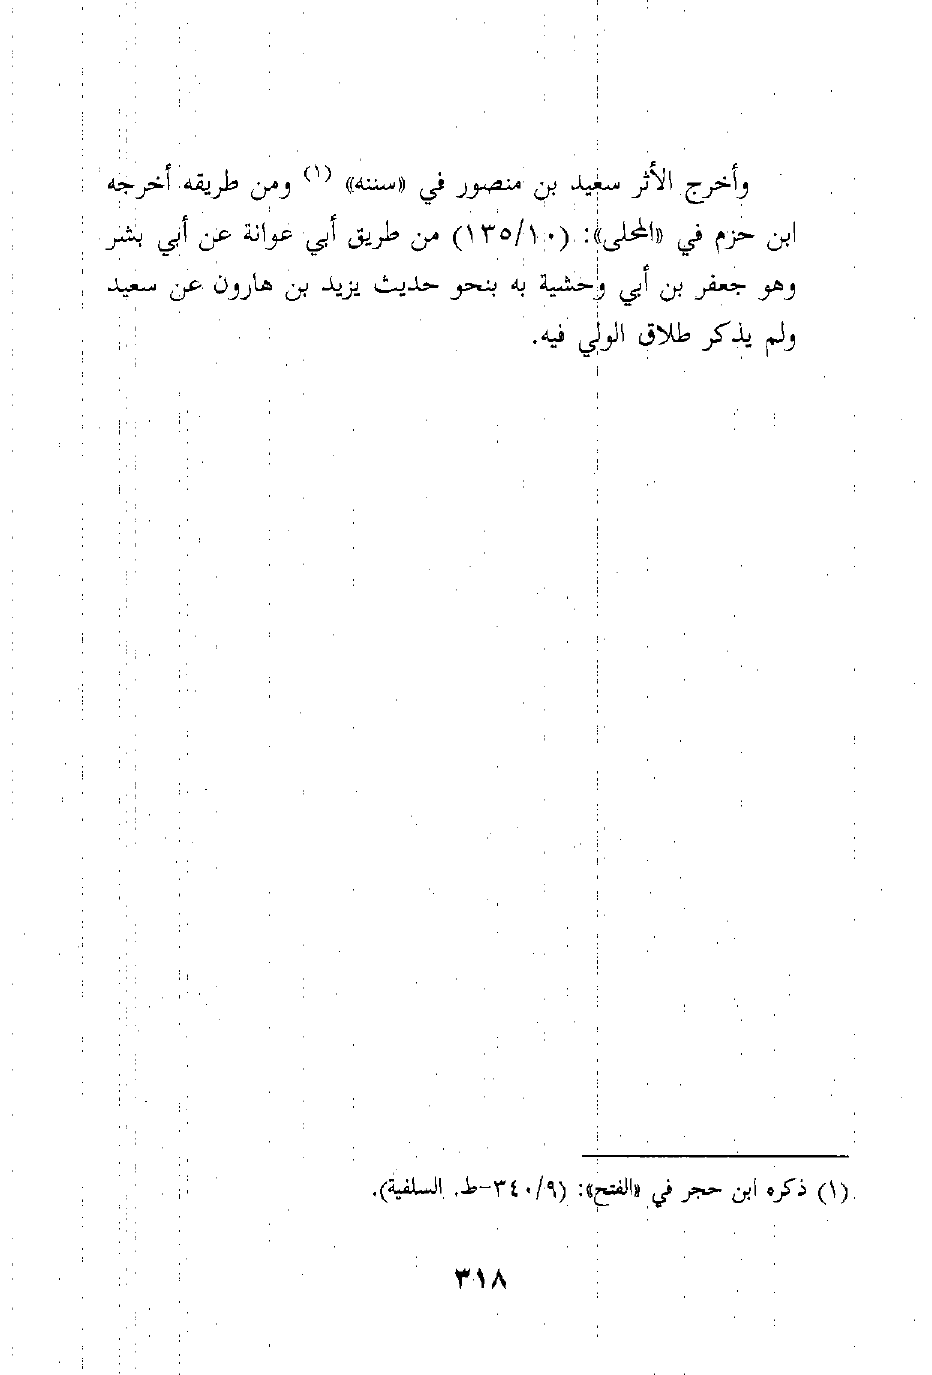 وأخرج الأثر سعيد بن منصور في «سننه» (١) ومن طريقه أخرجه
ابن حزم في «المحلى»: (١٣٥/١٠) من طريق أبي عوانة عن أبي بشر
وهو جعفر بن أبي وحشية به بنحو حديث يزيد بن هارون عن سعيد
ولم يذكر طلاق الولي فيه.
(١) ذكره ابن حجر في «الفتح»: (٣٤٠/٩-ط. السلفية).
٣١٨